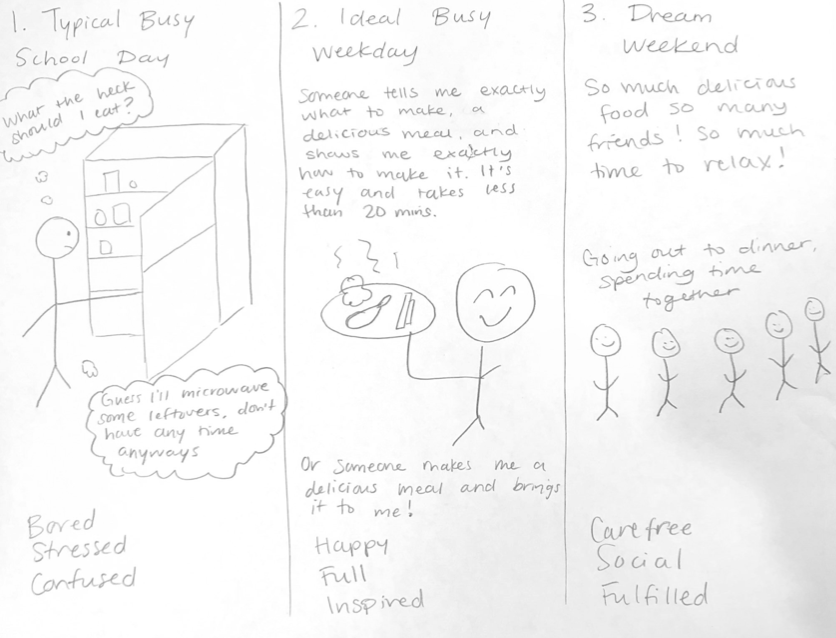 1. Typical Busy
School Day
What the heck
should I eat?
Guess I'll microwave
some leftovers, don't
have any time
anyways
Bored
Stressed
Confused
2. Ideal Busy
Weekday
Someone tells me exactly
what to make, a
delicious meal, and
shows me exactly
how to make it. It's
easy and takes less
than 20 mins.
Or someone makes me a
delicious meal and brings
it to me!
Happy
Full
Inspired
3. Dream
Weekend
So much delicious
food so many
friends! So much
time to relax!
Going out to dinner,
spending time
together
Carefree
Social
Fulfilled